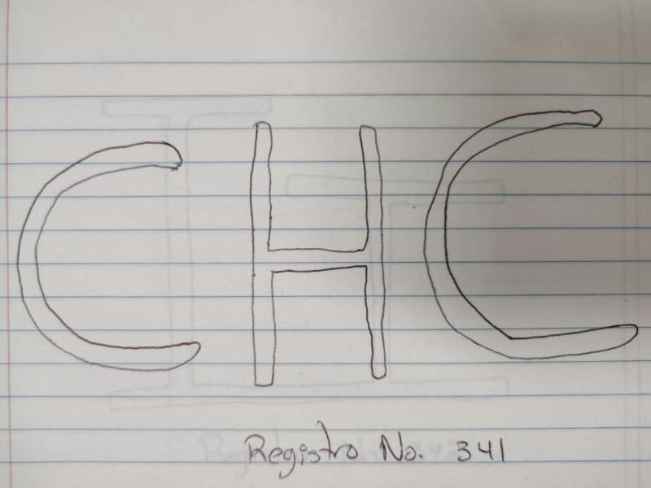 CHC
Registro No. 341